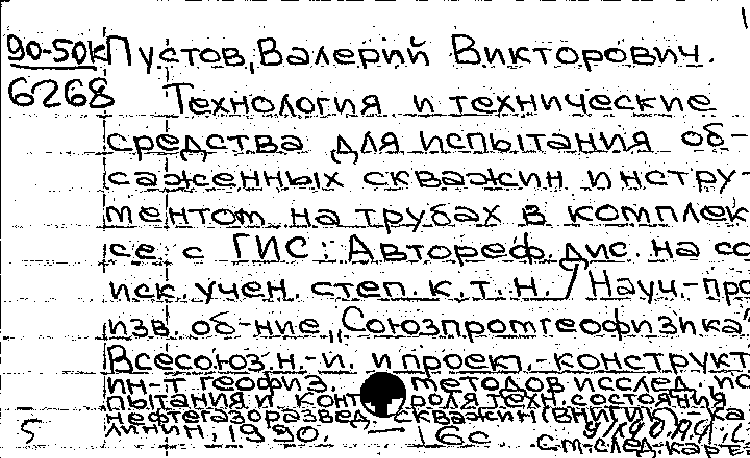 90-50к Пустов, Валерий Викторович.
6268 Технология и технические
средства для испытания об-
саженных скважин инстру-
ментом на трубах в комплек
се с ГИС: Автореф. дис. на со
иск. учен. степ. к.т.н. / Науч.-про
изв. об-ние "Союзпромгеофизика"
Всесоюз. н.-и. и проект.-конструкт
ин-т геофиз. методов исслед., ис
пытания и контроля техн. состояния
нефтегазоразвед. скважин (ВНИГИК) - Ка
5 линин, 1990. — 16 с
См. след. карт.